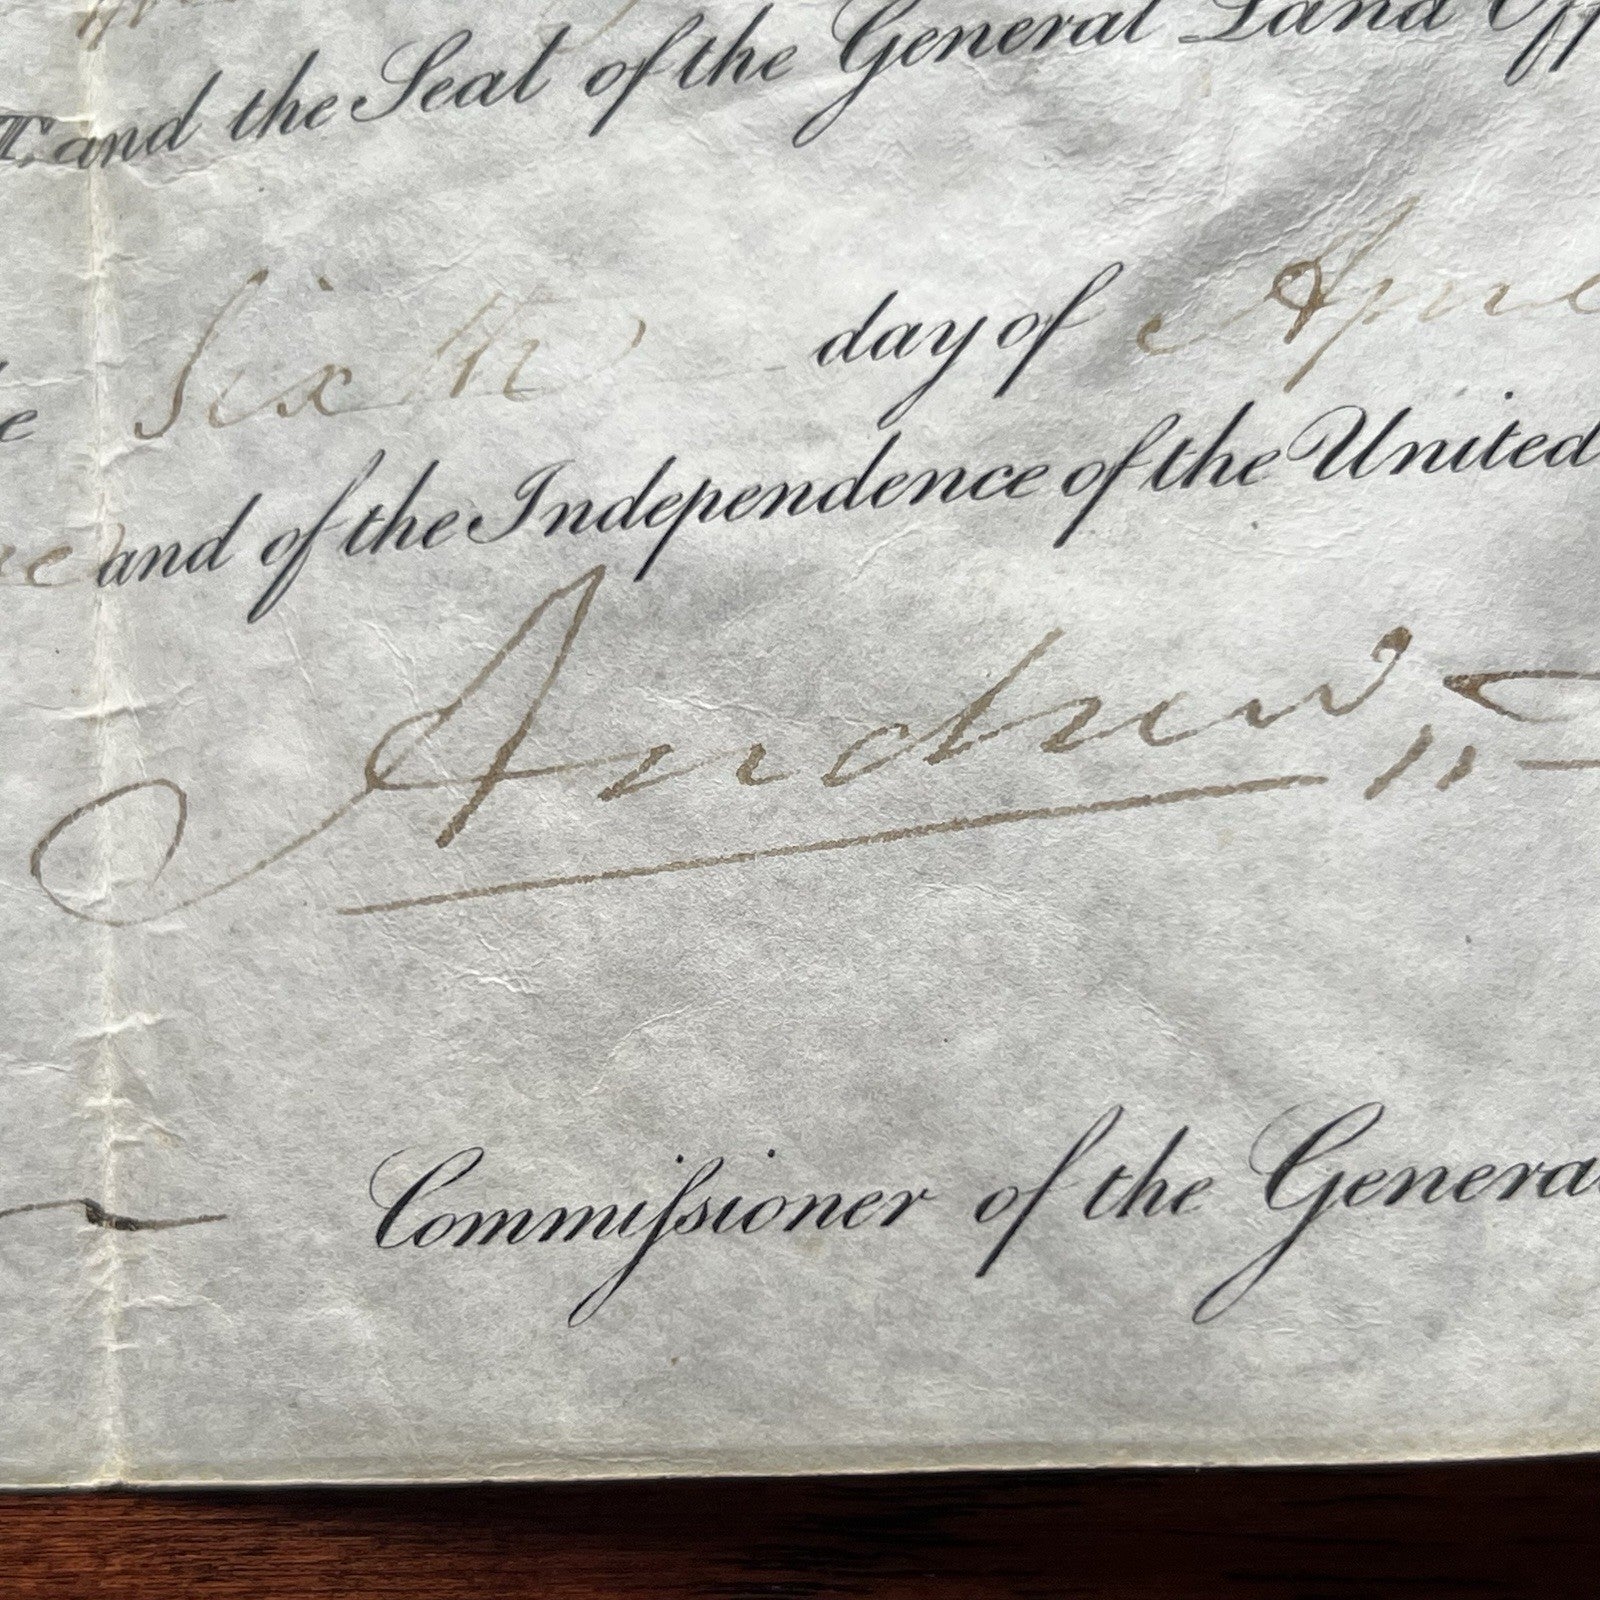 and the Seal of the General Land Off
e Sixth day of April
and of the Independence of the United
Andrew J
Commissioner of the General